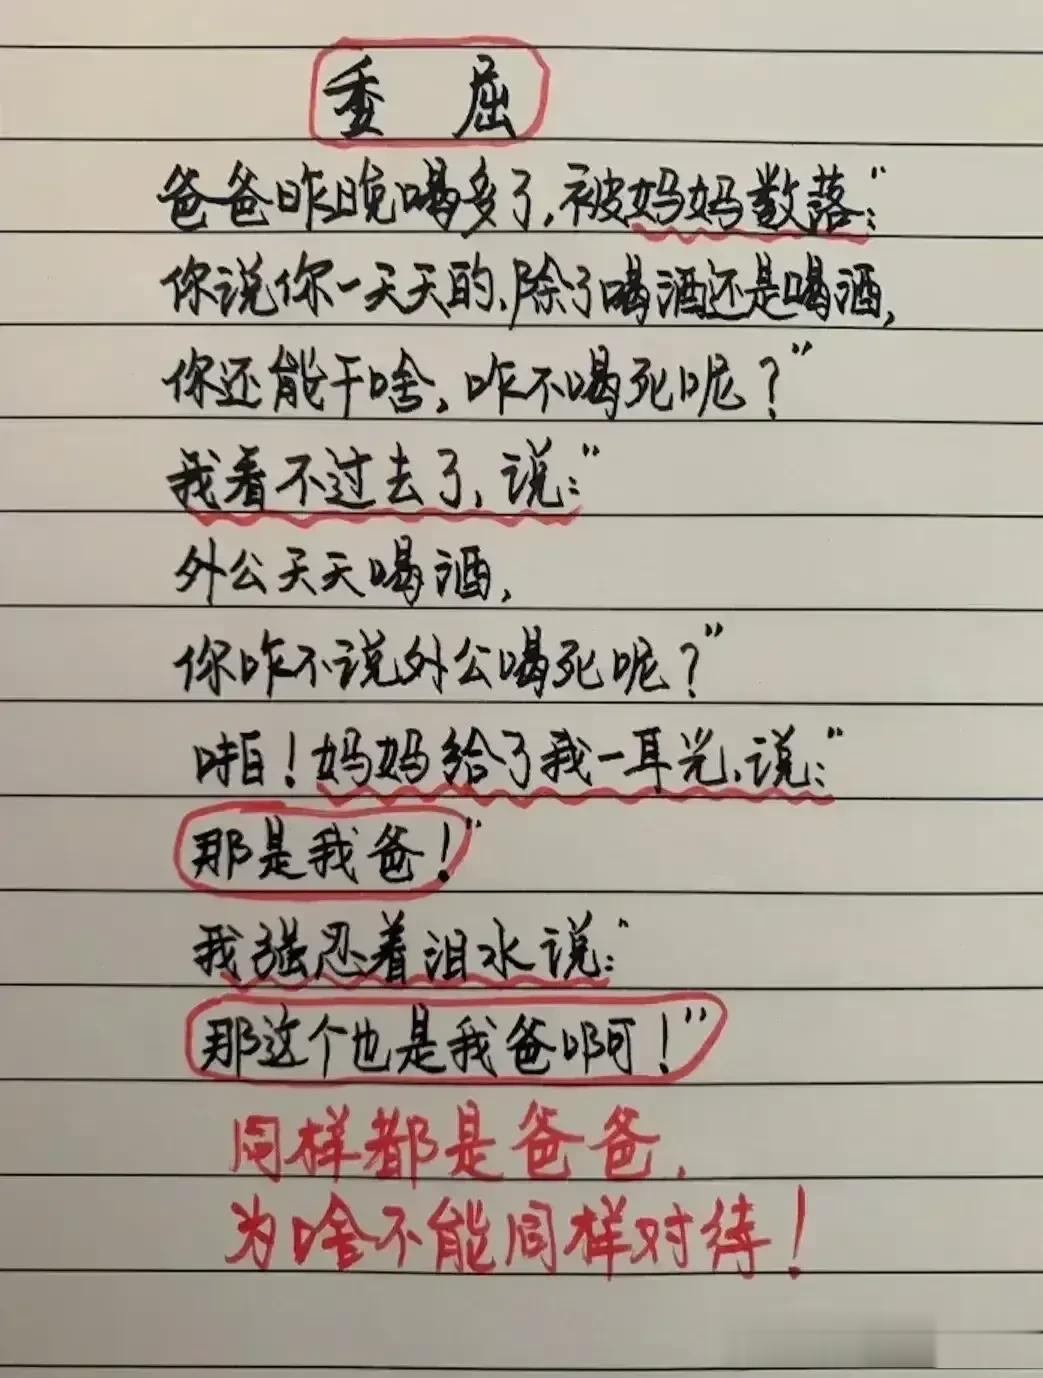 委 屈
爸爸昨晚喝多了,被妈妈数落:“
你说你一天天的,除了喝酒还是喝酒,
你还能干啥,咋不喝死呢?”
我看不过去了,说:“
外公天天喝酒,
你咋不说外公喝死呢?”
啪!妈妈给了我一耳光,说:“
那是我爸!”
我强忍着泪水说:“
那这个也是我爸啊!”
同样都是爸爸,
为啥不能同样对待!